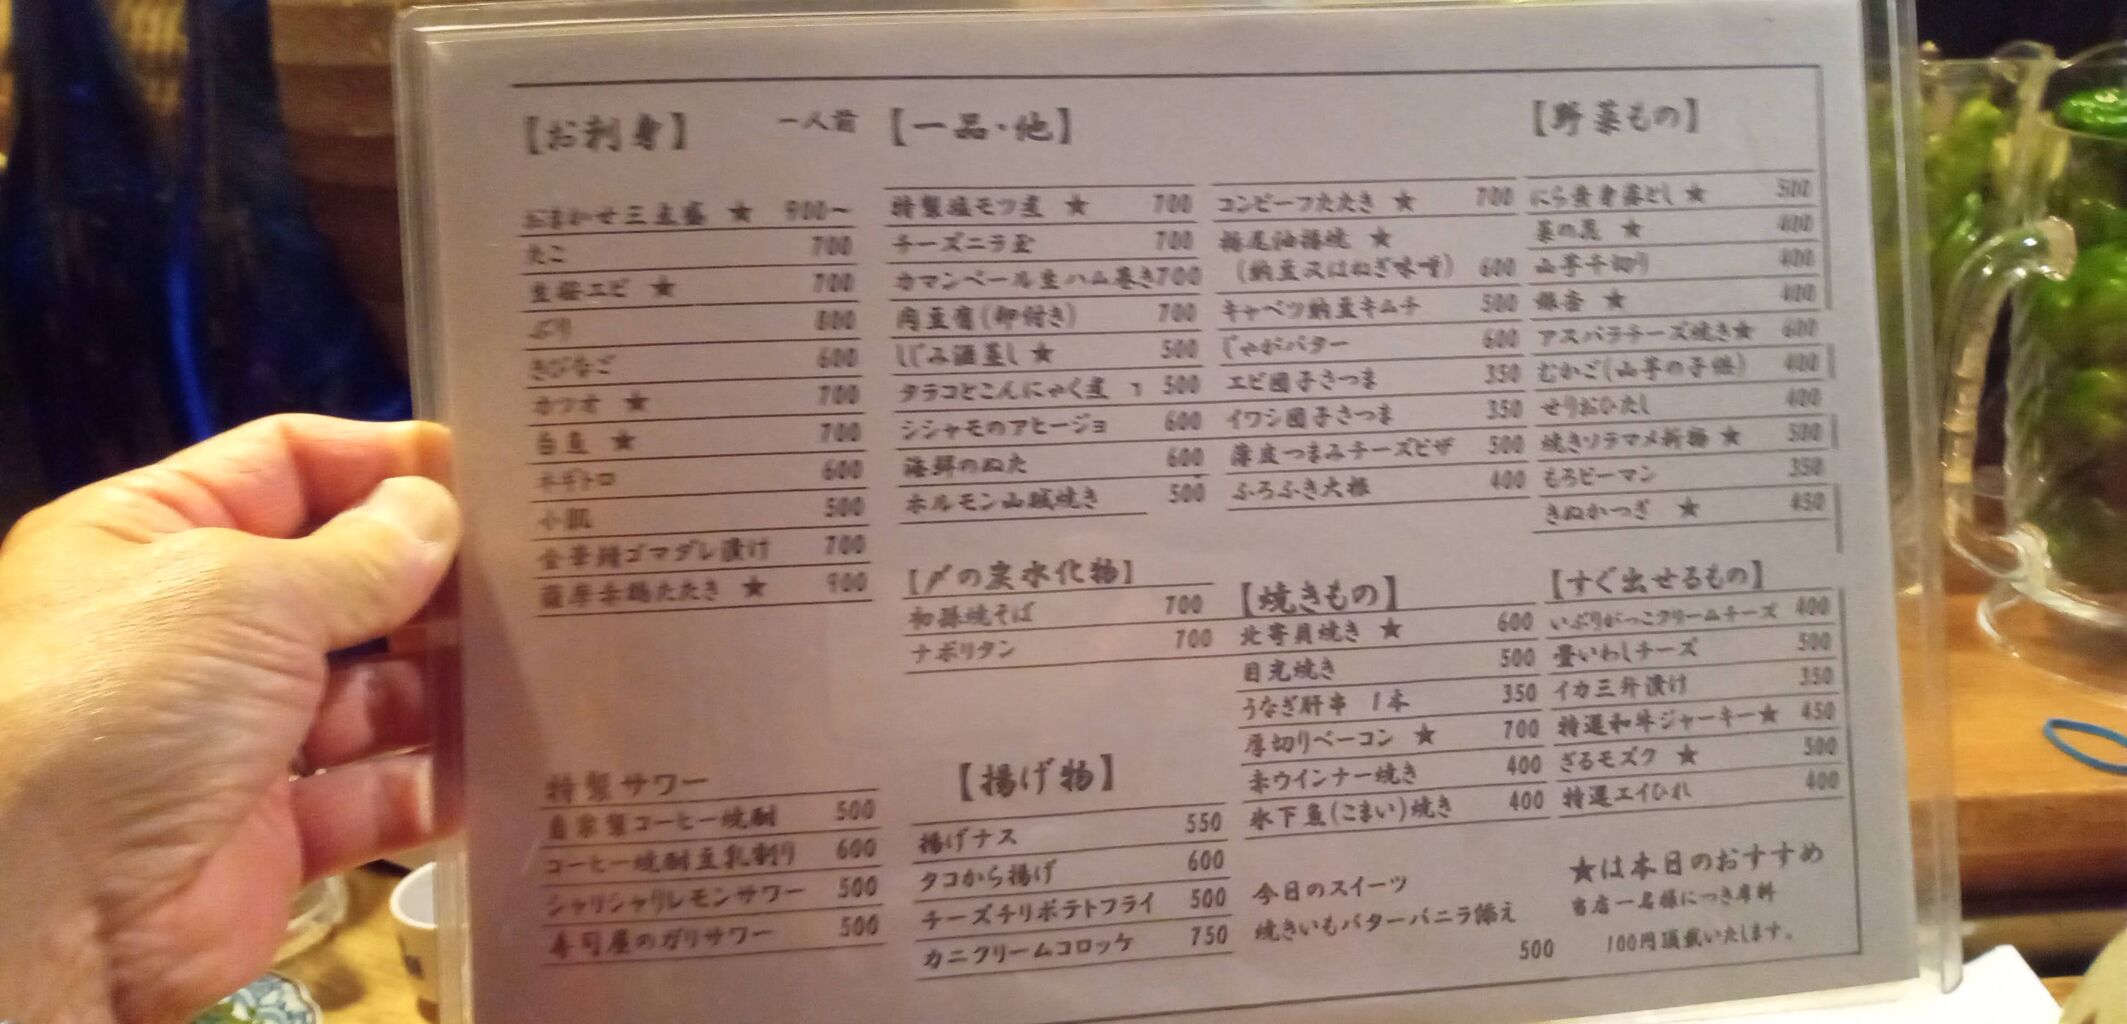 【お刺身】 一人前
おまかせ三点盛 ★ 900〜
たこ 700
生桜エビ ★ 700
ぶり 800
きびなご 600
カツオ ★ 700
白魚 ★ 700
ネギトロ 600
小肌 500
金華鯖ゴマダレ漬け 700
薩摩赤鶏たたき ★ 900
特製サワー
自家製コーヒー焼酎 500
コーヒー焼酎豆乳割り 600
シャリシャリレモンサワー 500
寿司屋のガリサワー 500
【一品・他】
特製塩モツ煮 ★ 700
チーズニラ玉 700
カマンベール生ハム巻き700
肉豆腐(卵付き) 700
しじみ酒蒸し ★ 500
タラコとこんにゃく煮 500
シシャモのアヒージョ 600
海鮮のぬた 600
ホルモン山賊焼き 500
コンビーフたたき ★ 700
栃尾油揚焼 ★
(納豆又はねぎ味噌) 600
キャベツ納豆キムチ 500
じゃがバター 600
エビ団子さつま 350
イワシ団子さつま 350
薄皮つまみチーズピザ 500
ふろふき大根 400
【〆の炭水化物】
初孫焼そば 700
ナポリタン 700
【揚げ物】
揚げナス 550
タコから揚げ 600
チーズチリポテトフライ 500
カニクリームコロッケ 750
【焼きもの】
北寄貝焼き ★ 600
目光焼き 500
うなぎ肝串 1本 350
厚切りベーコン ★ 700
赤ウインナー焼き 400
氷下魚(こまい)焼き 400
今日のスイーツ
焼きいもバターバニラ添え
500
【野菜もの】
にら黄身落とし ★ 500
菜の花 ★ 400
山芋千切り 400
銀杏 ★ 400
アスパラチーズ焼き★ 600
むかご(山芋の子供) 400
せりおひたし 400
焼きソラマメ ★ 500
もろピーマン 350
きぬかつぎ ★ 450
【すぐ出せるもの】
いぶりがっこクリームチーズ 400
畳いわしチーズ 500
イカ三升漬け 350
特選和牛ジャーキー★ 450
ざるモズク ★ 500
特選エイひれ 400
★は本日のおすすめ
当店一名様につき席料
100円頂戴いたします。